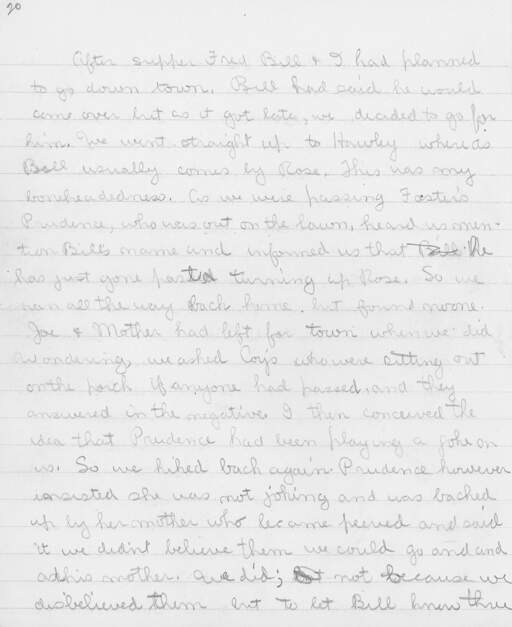 20
After supper Fred Bill & I had planned
to go down town. Bill had said he would
come over but as it got late, we decided to go for
him. We went straight up to Hawley where as
Bill usually comes by Rose. This was my
boneheadedness. As we were passing Foster's
Prudence, who was out on the lawn, heard us men-
tion Bill's name and informed us that he
has just gone past turning up Rose. So we
ran all the way back home. but found no one.
Joe & Mother had left for town when we did
Wondering, we asked Corps who were sitting out
on the porch if anyone had passed, and they
answered in the negative. I then conceived the
idea that Prudence had been playing a joke on
us. So we hiked back again. Prudence however
insisted she was not joking and was backed
up by her mother who became peeved and said
if we didn't believe them we could go and and
ask his mother. We did; not because we
disbelieved them but to let Bill know thru